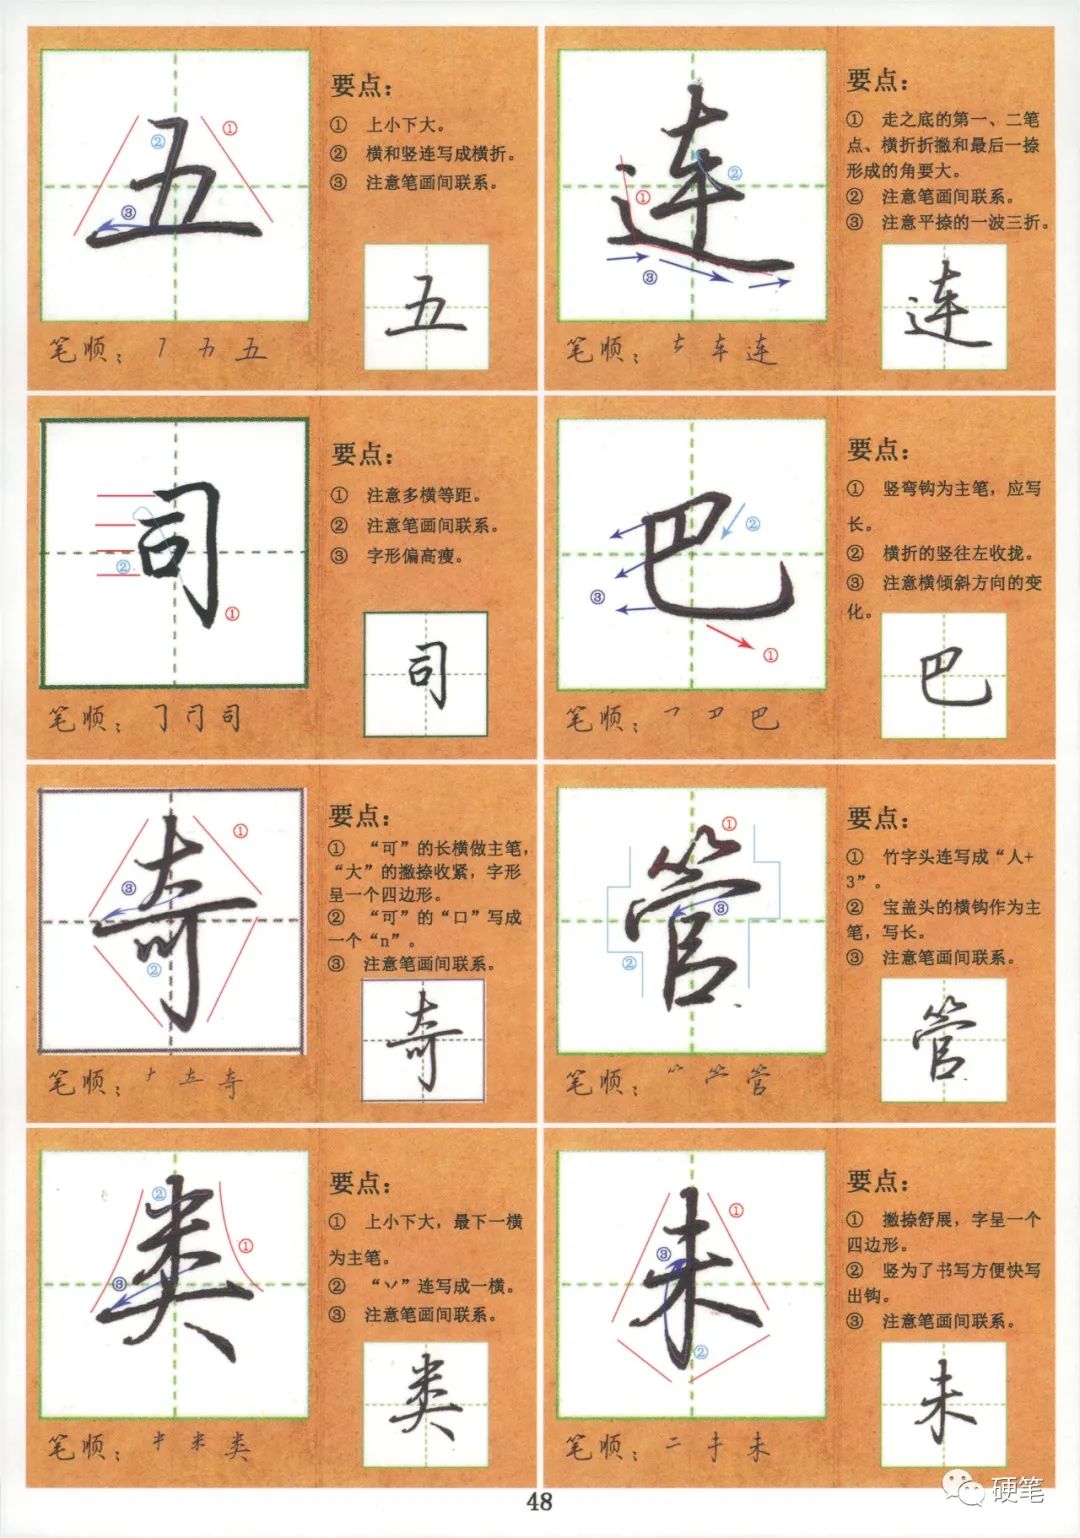 五
①
②
③
要点：
① 上小下大。
② 横和竖连写成横折。
③ 注意笔画间联系。
五
笔顺：㇕ 五
连
①
②
③
要点：
① 走之底的第一、二笔
点、横折折撇和最后一捺
形成的角要大。
② 注意笔画间联系。
③ 注意平捺的一波三折。
连
笔顺：车 连
司
②
①
要点：
① 注意多横等距。
② 注意笔画间联系。
③ 字形偏高瘦。
司
笔顺：司
巴
②
③
①
要点：
① 竖弯钩为主笔，应写
长。
② 横折的竖往左收拢。
③ 注意横倾斜方向的变
化。
巴
笔顺：巴
奇
①
③
②
要点：
① “可”的长横做主笔，
“大”的撇捺收紧，字形
呈一个四边形。
② “可”的“口”写成
一个“n”。
③ 注意笔画间联系。
奇
笔顺：奇
管
①
③
②
要点：
① 竹字头连写成“人+
3”。
② 宝盖头的横钩作为主
笔，写长。
③ 注意笔画间联系。
管
笔顺：管
类
②
①
③
要点：
① 上小下大，最下一横
为主笔。
② “丷”连写成一横。
③ 注意笔画间联系。
类
笔顺：米 类
未
①
③
②
要点：
① 撇捺舒展，字呈一个
四边形。
② 竖为了书写方便快写
出钩。
③ 注意笔画间联系。
未
笔顺：二 未
48
硬笔